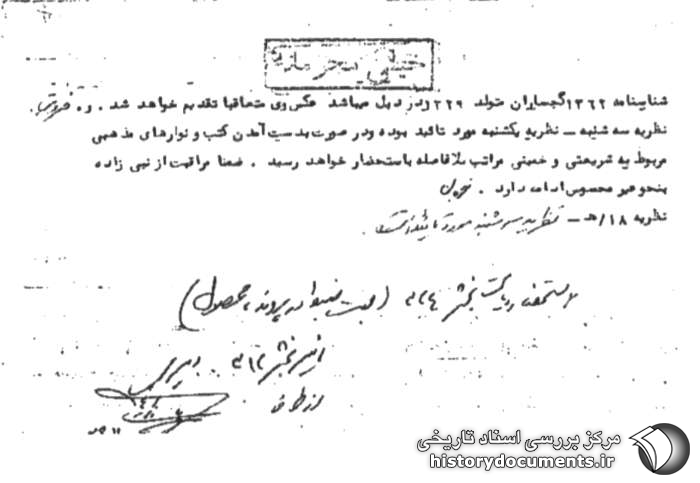 خیلی محرمانه
شناسنامه ۱۳۶۲ گچساران متولد ۲۲۹ ودر دیل میباشد عکس وی متعاقبا تقدیم خواهد شد . و.
نظریه سه شنبه ــ نظریه یکشنبه مورد تائید بوده ودر صورت بدست آمدن کتب و نوارهای مذهبی
مربوط به شریعتی و خمینی مراتب بلافاصله باستحضار خواهد رسید . ضمنا مراقبت از نبی زاده
بنحو غیر محسوس ادامه دارد .
نظریه ۱۸/هـ ــ نظریه سه شنبه مورد تائید است
ریاست بخش ۳۱۲ (جهت ضبط در پرونده محصول)
رهبر بخش ۳۱۲
از طرف
مرکز بررسی اسناد تاریخی
historydocuments.ir